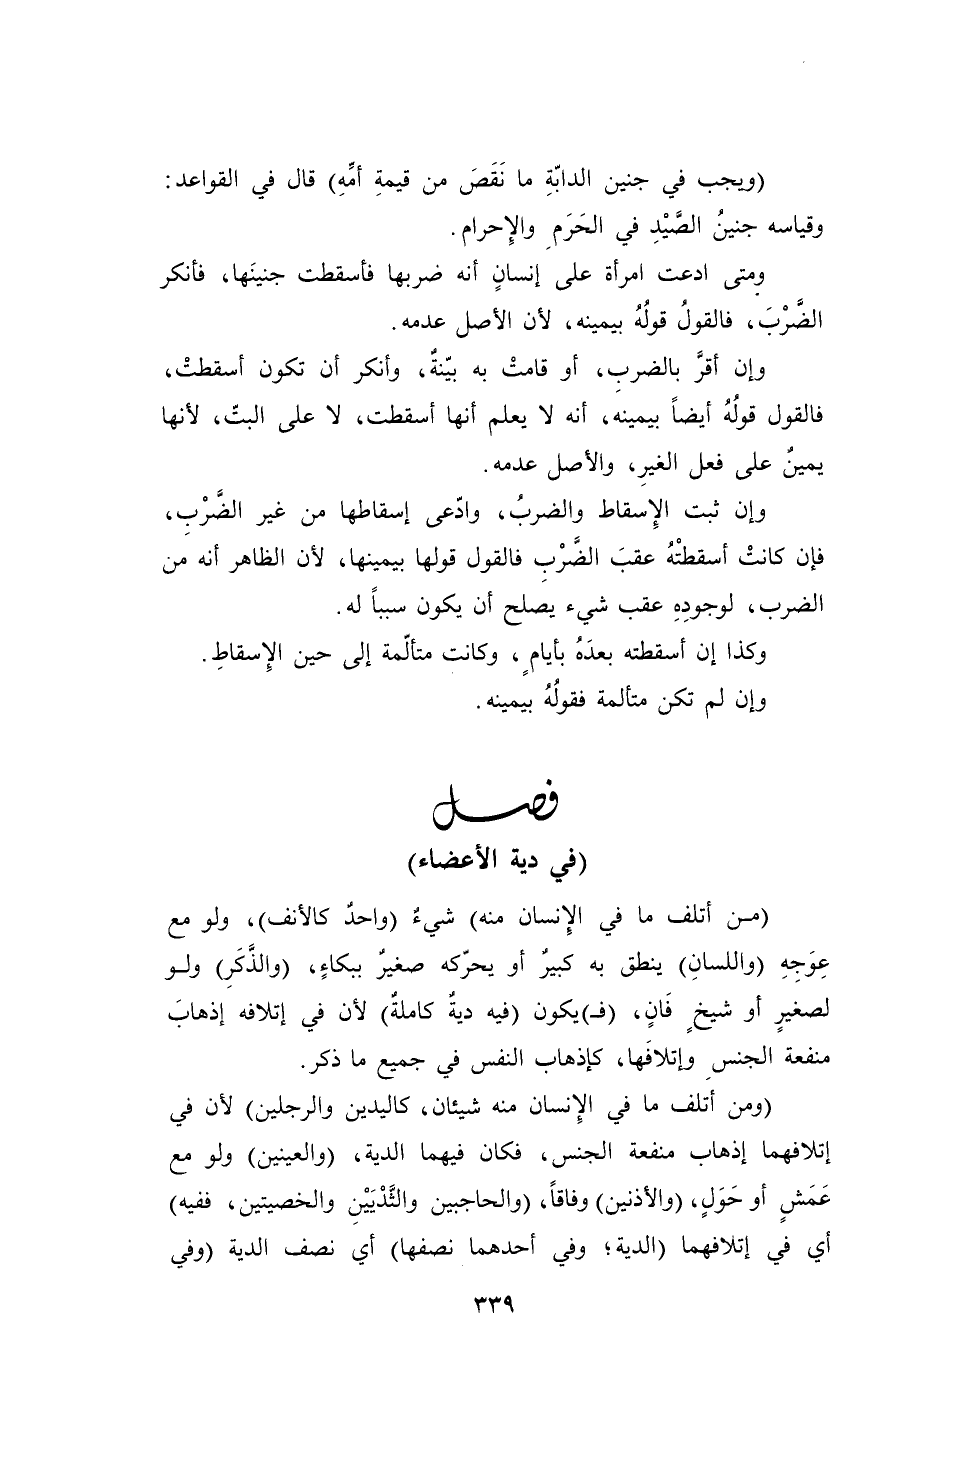 (ويجب في جنين الدابّةِ ما نَقَصَ من قيمةِ أمِّهِ) قال في القواعد:
وقياسه جنينُ الصَّيْدِ في الحَرَمِ والإِحرام.
ومتى ادعت امرأة على إنسانٍ أنه ضربها فأسقطت جنينَها، فأنكر
الضَّرْبَ، فالقولُ قولُهُ بيمينه، لأن الأصل عدمه.
وإن أقرَّ بالضربِ، أو قامتْ به بيّنةٌ، وأنكر أن تكون أسقطتْ،
فالقول قولُهُ أيضاً بيمينه، أنه لا يعلم أنها أسقطت، لا على البتّ، لأنها
يمينٌ على فعل الغيرِ، والأصل عدمه.
وإن ثبت الإِسقاط والضربُ، وادّعى إسقاطها من غير الضَّرْبِ،
فإن كانتْ أسقطتْهُ عقبَ الضَّرْبِ فالقول قولها بيمينها، لأن الظاهر أنه من
الضرب، لوجودِهِ عقب شيء يصلح أن يكون سبباً له.
وكذا إن أسقطته بعدَهُ بأيامٍ، وكانت متألّمة إلى حين الإِسقاطِ.
وإن لم تكن متألمة فقولُهُ بيمينه.
فصل
(في دية الأعضاء)
(مـن أتلف ما في الإِنسان منه) شيءٌ (واحدٌ كالأنف)، ولو مع
عِوَجِهِ (واللسانِ) ينطق به كبيرٌ أو يحرّكه صغيرٌ ببكاءٍ، (والذَّكَرِ) ولـو
لصغيرٍ أو شيخٍ فَانٍ، (فـ)يكون (فيه ديةٌ كاملةٌ) لأن في إتلافه إذهابَ
منفعة الجنسِ وإتلافَها، كإذهاب النفس في جميع ما ذكر.
(ومن أتلف ما في الإِنسان منه شيئان، كاليدين والرجلين) لأن في
إتلافهما إذهاب منفعة الجنس، فكان فيهما الدية، (والعينين) ولو مع
عَمَشٍ أو حَوَلٍ، (والأذنين) وفاقاً، (والحاجبين والثَّدْيَيْنِ والخصيتين، ففيه)
أي في إتلافهما (الدية؛ وفي أحدهما نصفها) أي نصف الدية (وفي
٣٣٩